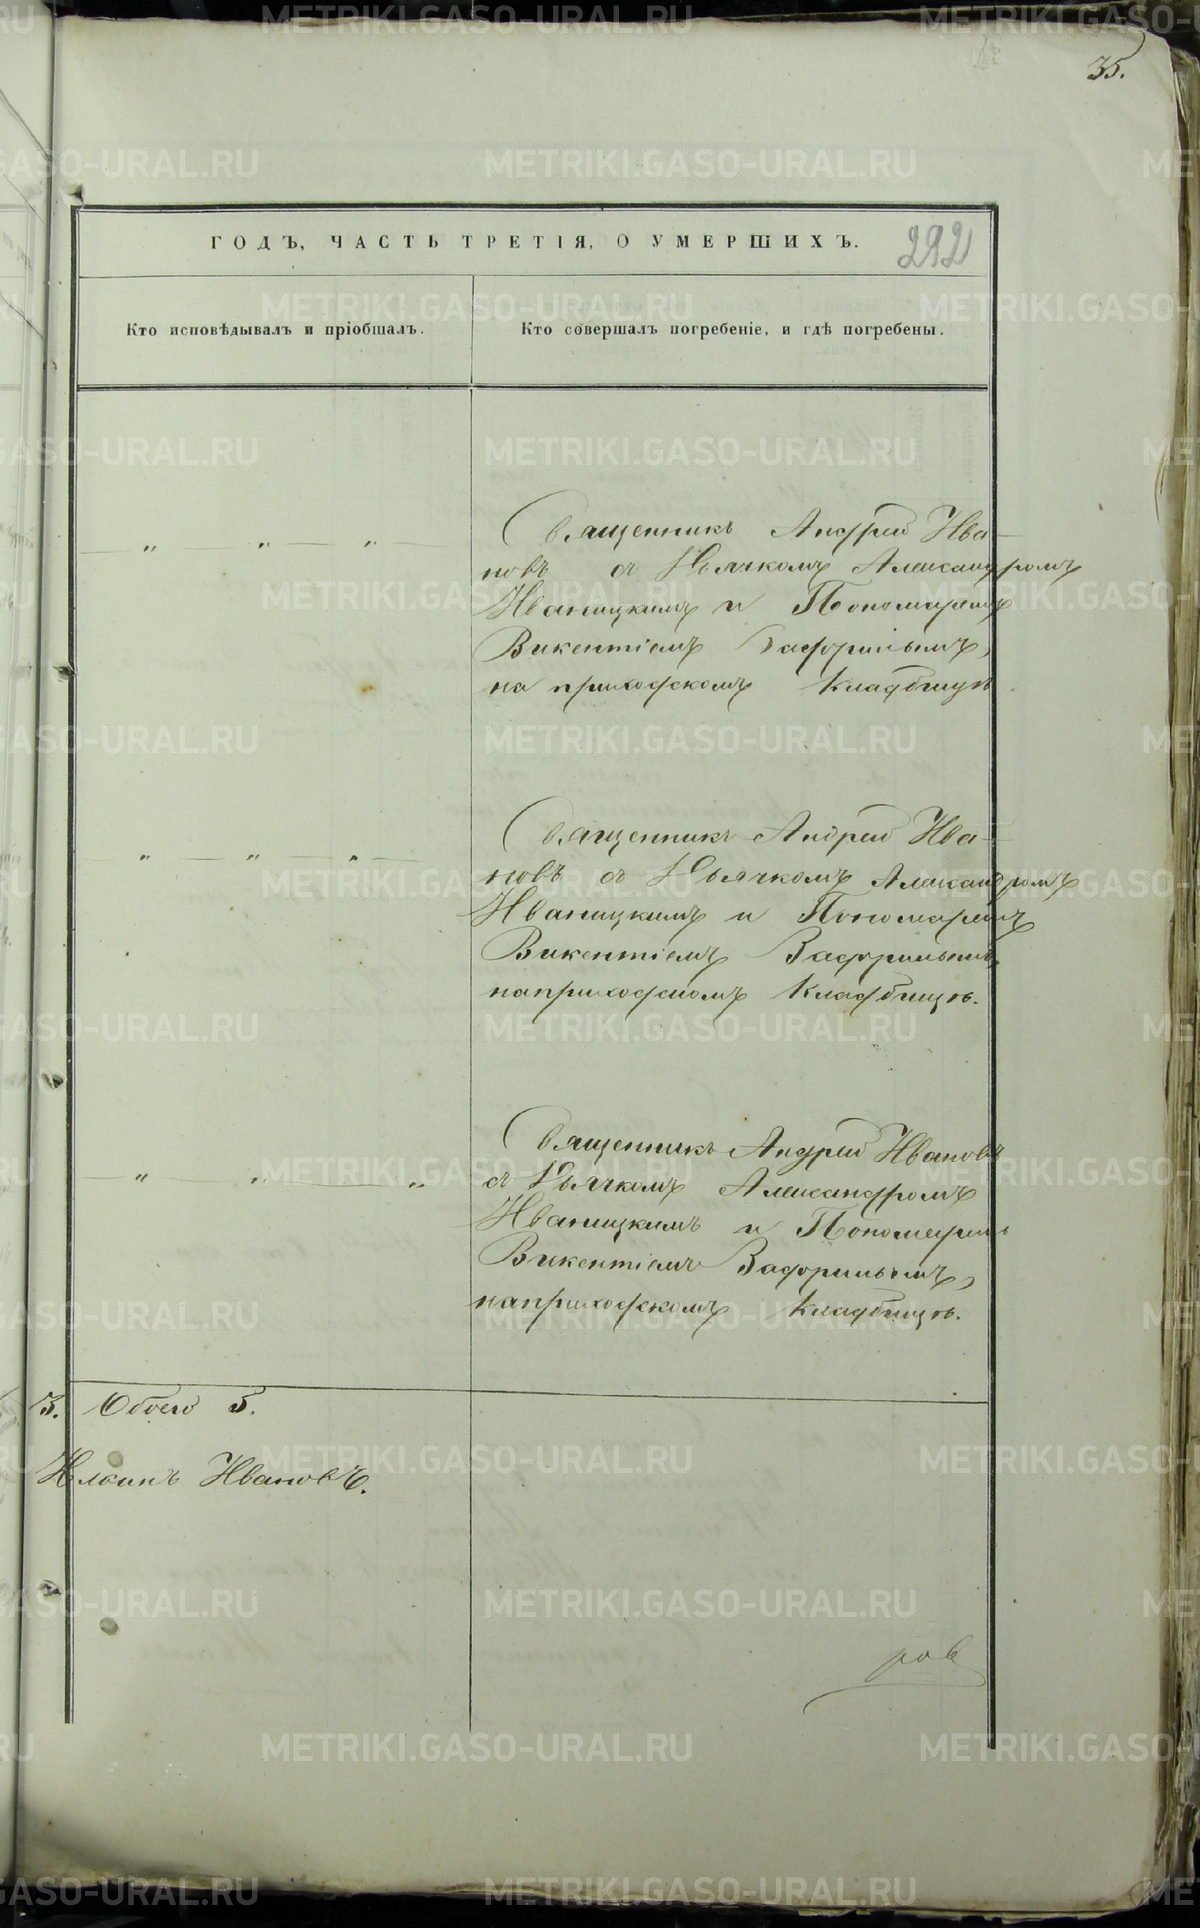 35.
ГОДЪ, ЧАСТЬ ТРЕТІЯ, О УМЕРШИХЪ.
292
Кто исповѣдывалъ и пріобщалъ.
Кто совершалъ погребеніе, и гдѣ погребены.
Священникъ Андрей Ива-
новъ съ Дьячкомъ Александромъ
Иваницкимъ и Пономаремъ
Викентіемъ
на приходскомъ Кладбищѣ
Священникъ Андрей Ива-
новъ съ Дьячкомъ Александромъ
Иваницкимъ и Пономаремъ
Викентіемъ
на приходскомъ Кладбищѣ.
Священникъ Андрей Ивановъ
съ Дьячкомъ Александромъ
Иваницкимъ и Пономаремъ
Викентіемъ
на приходскомъ Кладбищѣ.
3. Обоего 5.
Ивановъ.
ров
METRIKI.GASO-URAL.RU